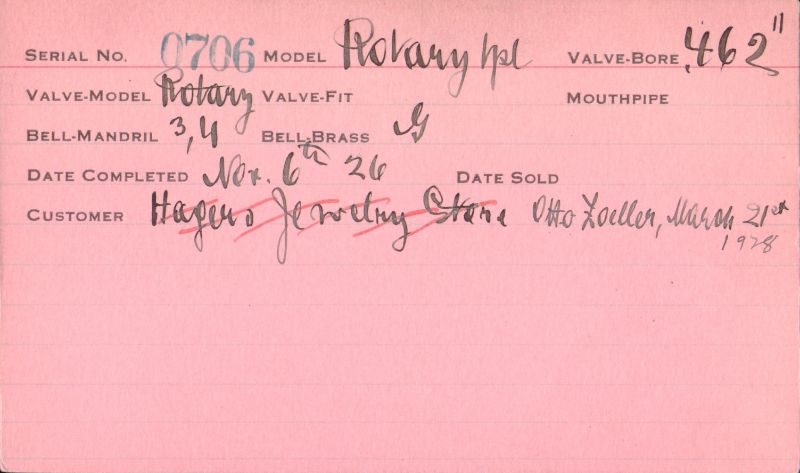 SERIAL NO. 0706 MODEL Rotary tpt VALVE-BORE .462"
VALVE-MODEL Rotary VALVE-FIT MOUTHPIPE
BELL-MANDRIL 3,4 BELL-BRASS G
DATE COMPLETED Nov. 6th 26 DATE SOLD
CUSTOMER Hagens Jewelry Store Otto Zoeller, March 21st
1928